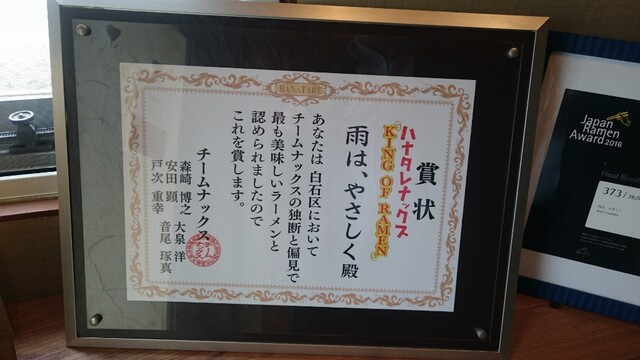 HANATARE
賞状
ハナタレナックス
KING OF RAMEN
雨は、やさしく 殿
あなたは 白石区において
チームナックスの独断と偏見で
最も美味しいラーメンと
認められましたので
これを賞します。
チームナックス
森崎 博之 大泉 洋
安田 顕
戸次 重幸 音尾 琢真
Japan
Ramen
Award 2016
373